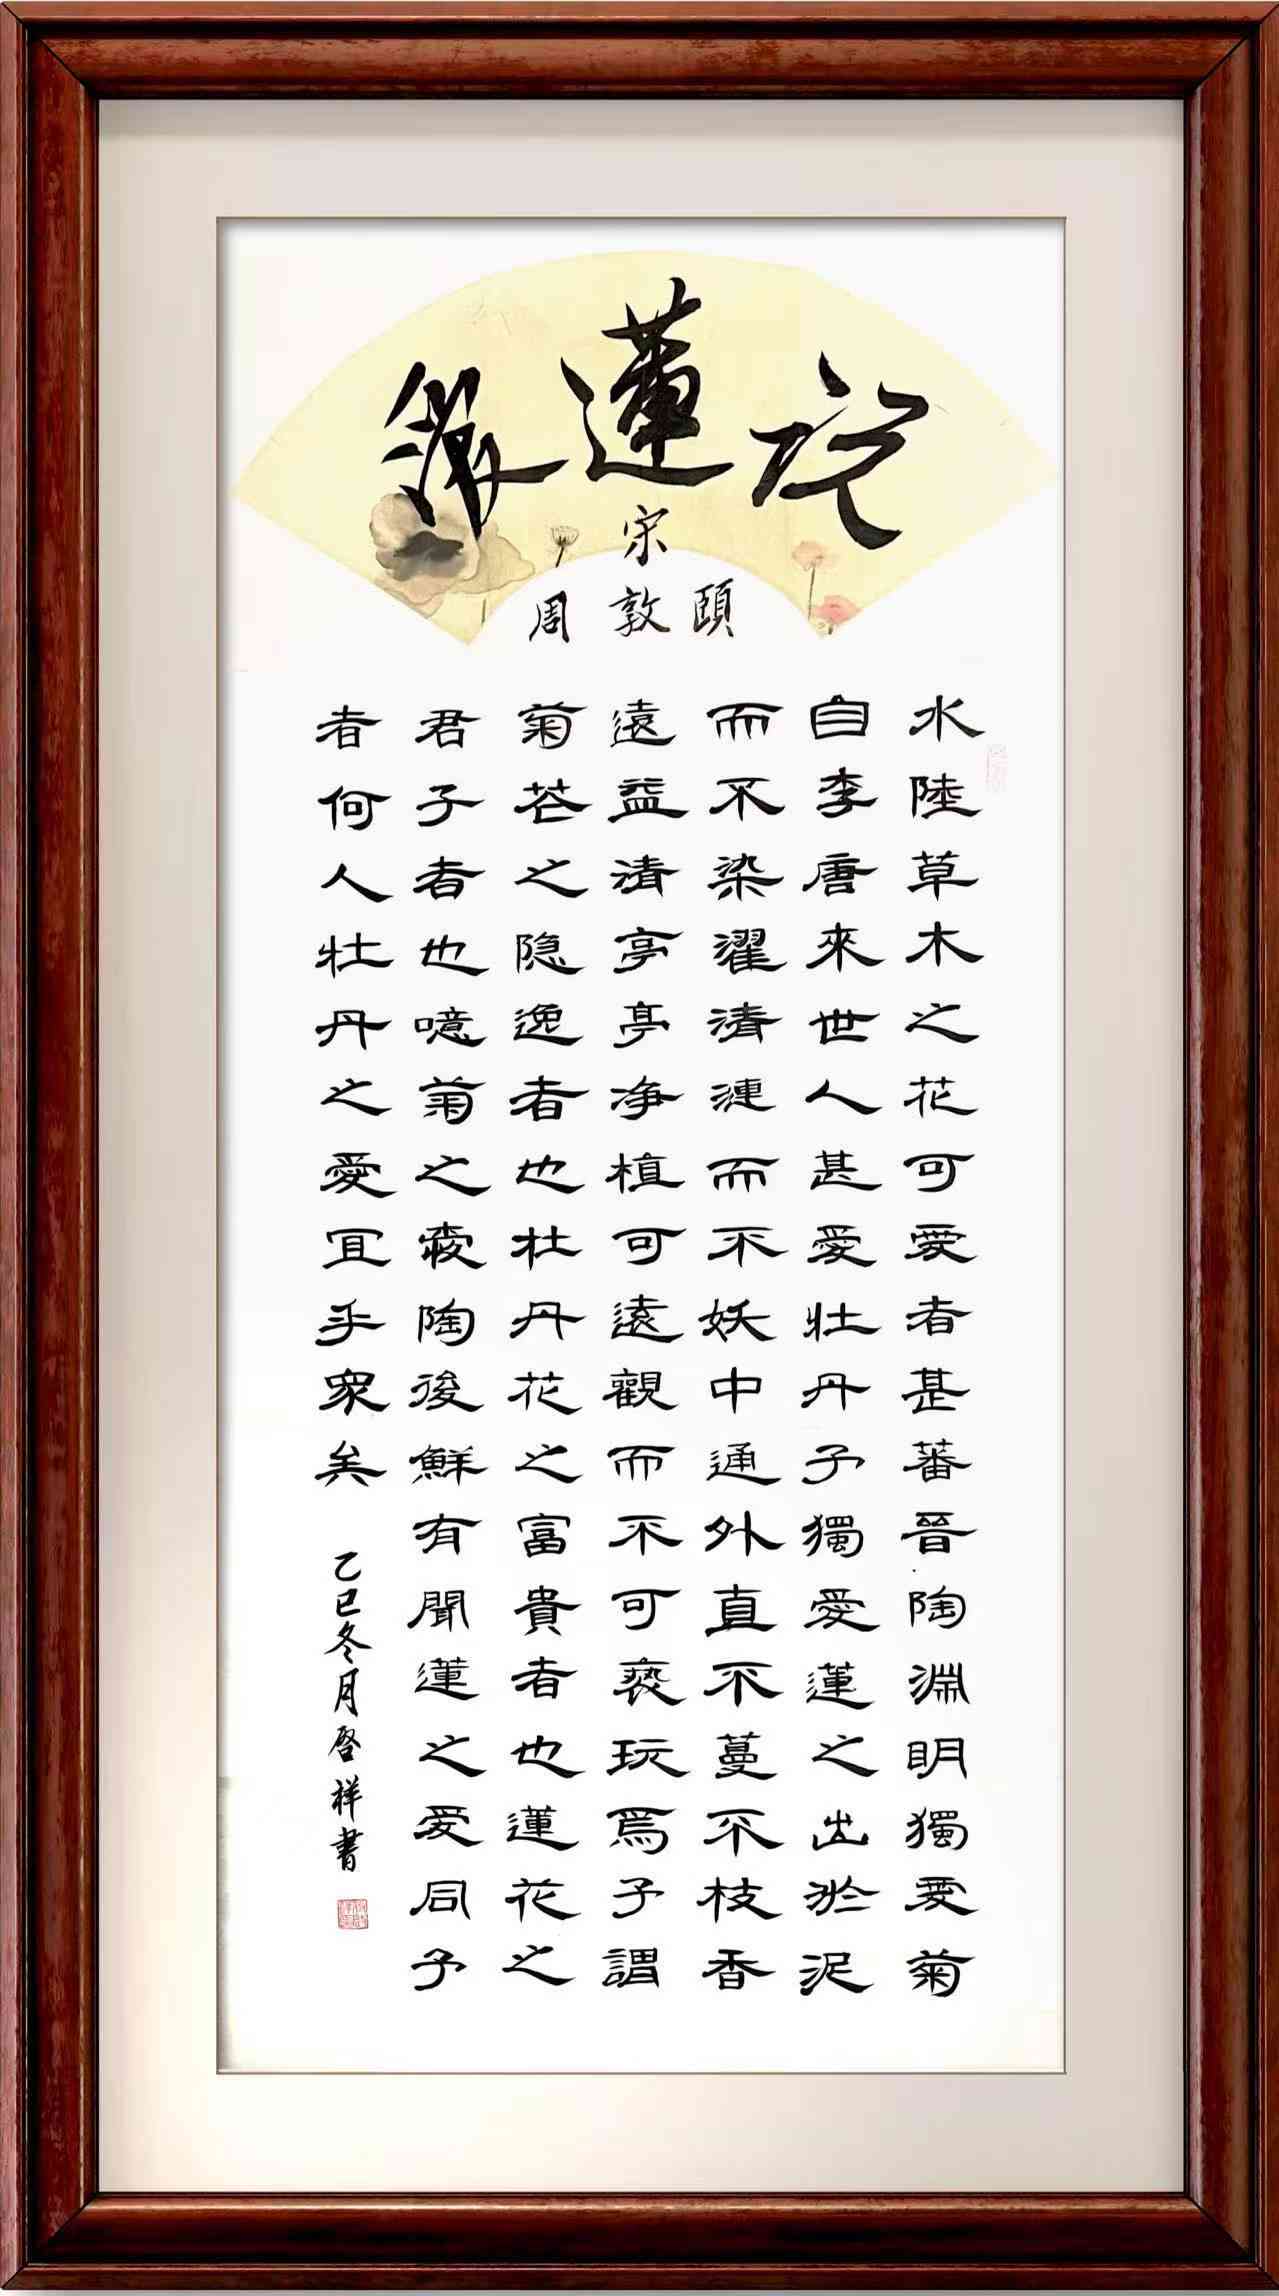 愛蓮说
宋
周敦頤
水陸草木之花可愛者甚蕃晉陶淵明獨愛菊
自李唐來世人甚愛牡丹予獨愛蓮之出淤泥
而不染濯清漣而不妖中通外直不蔓不枝香
遠益清亭亭净植可遠觀而不可褻玩焉予謂
菊花之隐逸者也牡丹花之富貴者也蓮花之
君子者也噫菊之愛陶後鮮有聞蓮之愛同予
者何人牡丹之愛宜乎眾矣
乙巳冬月啓祥書